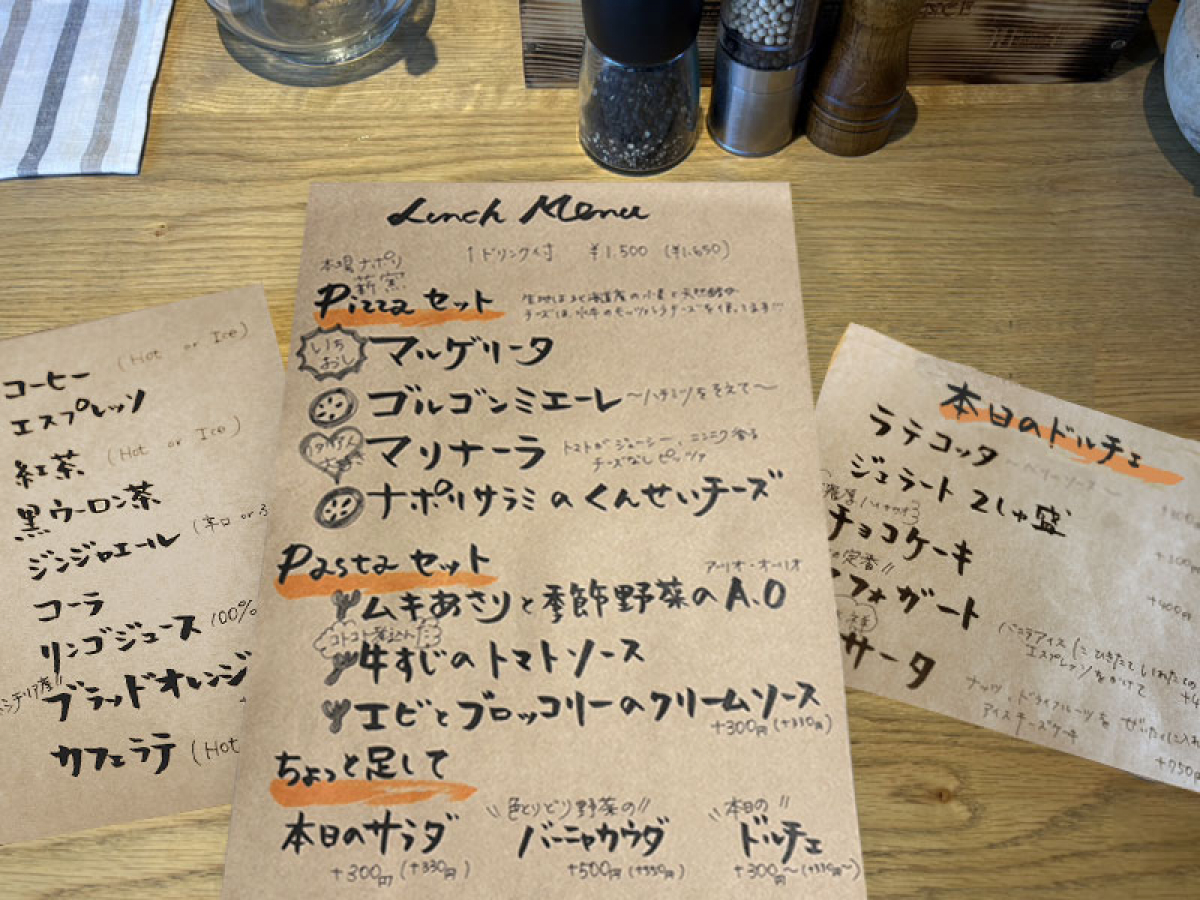 Lunch Menu
1ドリンク付 ¥1.500 (¥1.650)
本場ナポリ
薪窯
Pizza セット
生地は北海道産の小麦と天然酵母
チーズは、水牛のモッツァレラチーズを使ってます!!!
いち
おし
マルゲリータ
ゴルゴンミエーレ 〜ハチミツをそえて〜
マリナーラ
トマトがジューシー、ニンニク香る
チーズなしピッツァ
ナポリサラミのくんせいチーズ
Pasta セット
アーリオ・オーリオ
ムキあさりと季節野菜のA.O
コトコト煮込んだ
牛すじのトマトソース
エビとブロッコリーのクリームソース
+300円 (+330円)
ちょっと足して
本日のサラダ
+300円 (+330円)
色とりどり野菜の
バーニャカウダ
+500円 (+550円)
本日の
ドルチェ
+300円〜 (+330円〜)
コーヒー (Hot or Ice)
エスプレッソ
紅茶 (Hot or Ice)
黒ウーロン茶
ジンジャエール (辛口 or
コーラ
リンゴジュース 100%
ブラッドオレンジ
カフェラテ (Hot
本日のドルチェ
ラテコッタ
ジェラート 2しゅ盛
+300円
チョコケーキ
+400円
の定番!!
フォガート
バニラアイスにひきたていれたての
エスプレッソをかけて
サータ
ナッツ、ドライフルーツをぜいたくに入れ
アイスチーズケーキ
+750円